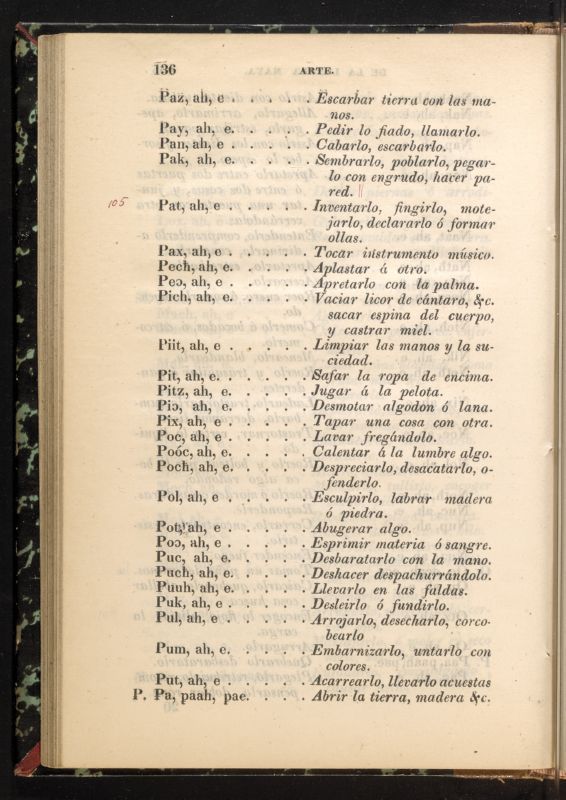 136 ARTE.
Paz, ah, e . . . . . . Escarbar tierra con las ma-
nos.
Pay, ah, e. . . . . . Pedir lo fiado, llamarlo.
Pan, ah, e . . . . . . Cabarlo, escarbarlo.
Pak, ah, e. . . . . . Sembrarlo, poblarlo, pegar-
lo con engrudo, hacer pa-
red.
105
Pat, ah, e . . . . . . Inventarlo, fingirlo, mote-
jarlo, declararlo ó formar
ollas.
Pax, ah, e . . . . . . Tocar instrumento músico.
Pecħ, ah, e. . . . . . Aplastar á otro.
Peɔ, ah, e . . . . . . Apretarlo con la palma.
Picħ, ah, e. . . . . . Vaciar licor de cántaro, &c.
sacar espina del cuerpo,
y castrar miel.
Piit, ah, e . . . . . . Limpiar las manos y la su-
ciedad.
Pit, ah, e. . . . . . Safar la ropa de encima.
Pitz, ah, e. . . . . . Jugar á la pelota.
Piɔ, ah, e. . . . . . Desmotar algodon ó lana.
Pix, ah, e . . . . . . Tapar una cosa con otra.
Poc, ah, e . . . . . . Lavar fregándolo.
Poóc, ah, e. . . . . . Calentar á la lumbre algo.
Pocħ, ah, e. . . . . . Despreciarlo, desacatarlo, o-
fenderlo.
Pol, ah, e . . . . . . Esculpirlo, labrar madera
ó piedra.
Pot, ah, e . . . . . . Abugerar algo.
Poɔ, ah, e . . . . . . Esprimir materia ó sangre.
Puc, ah, e. . . . . . Desbaratarlo con la mano.
Pucħ, ah, e. . . . . . Deshacer despachurrándolo.
Puuh, ah, e. . . . . . Llevarlo en las faldas.
Puk, ah, e . . . . . . Desleirlo ó fundirlo.
Pul, ah, e . . . . . . Arrojarlo, desecharlo, corco-
bearlo
Pum, ah, e. . . . . . Embarnizarlo, untarlo con
colores.
Put, ah, e . . . . . . Acarrearlo, llevarlo acuestas
P. Pa, paah, pae. . . . . Abrir la tierra, madera &c.